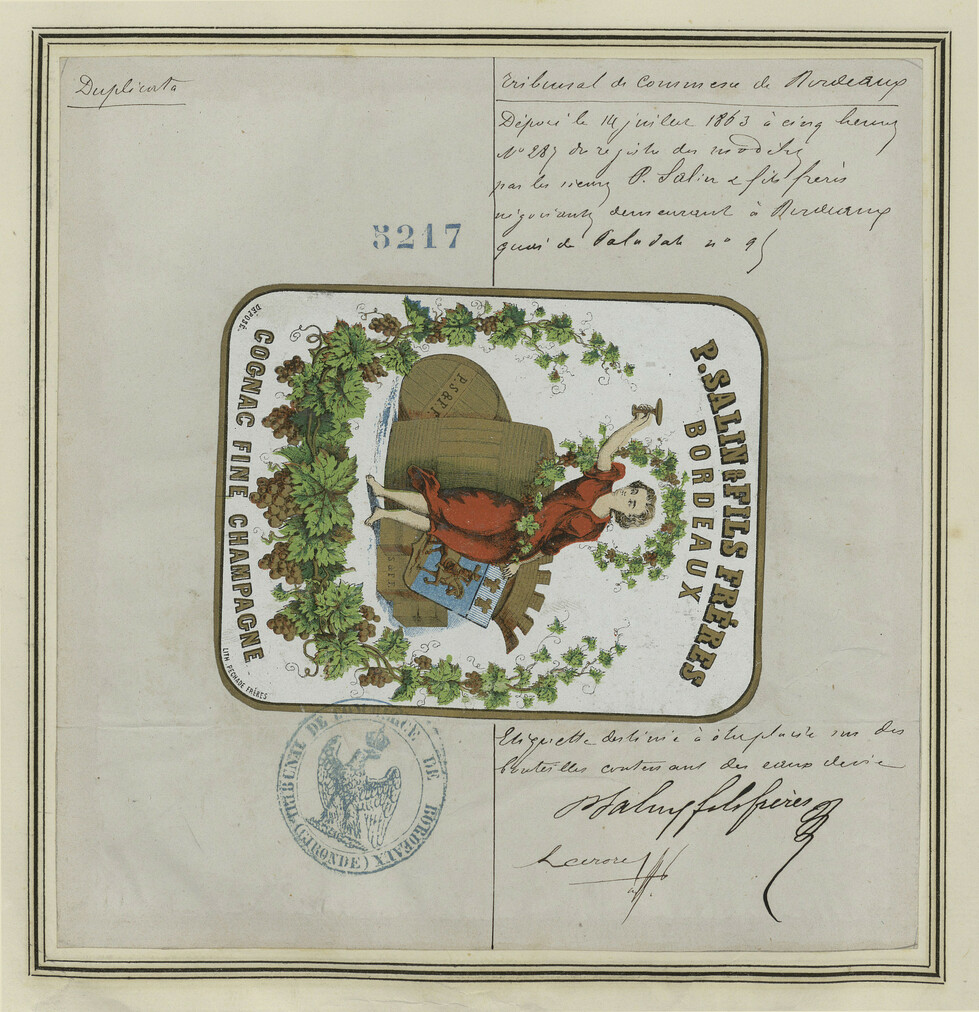 Duplicata
Tribunal de Commerce de Bordeaux
Déposé le 14 juillet 1863 à cinq heures
N° 287 du registre des modèles
par les sieurs P. Salin & fils frères
négociants demeurant à Bordeaux
quai de Paludate n° 95
5217
P. SALIN & FILS FRÈRES
BORDEAUX
P.S&F.F.
COGNAC FINE CHAMPAGNE
DÉPOSÉ.
LITH. PECHADE FRÈRES
TRIBUNAL DE COMMERCE DE BORDEAUX (GIRONDE)
Etiquette destinée à être placée sur des
bouteilles contenant des eaux de vie
P Salin & fils frères